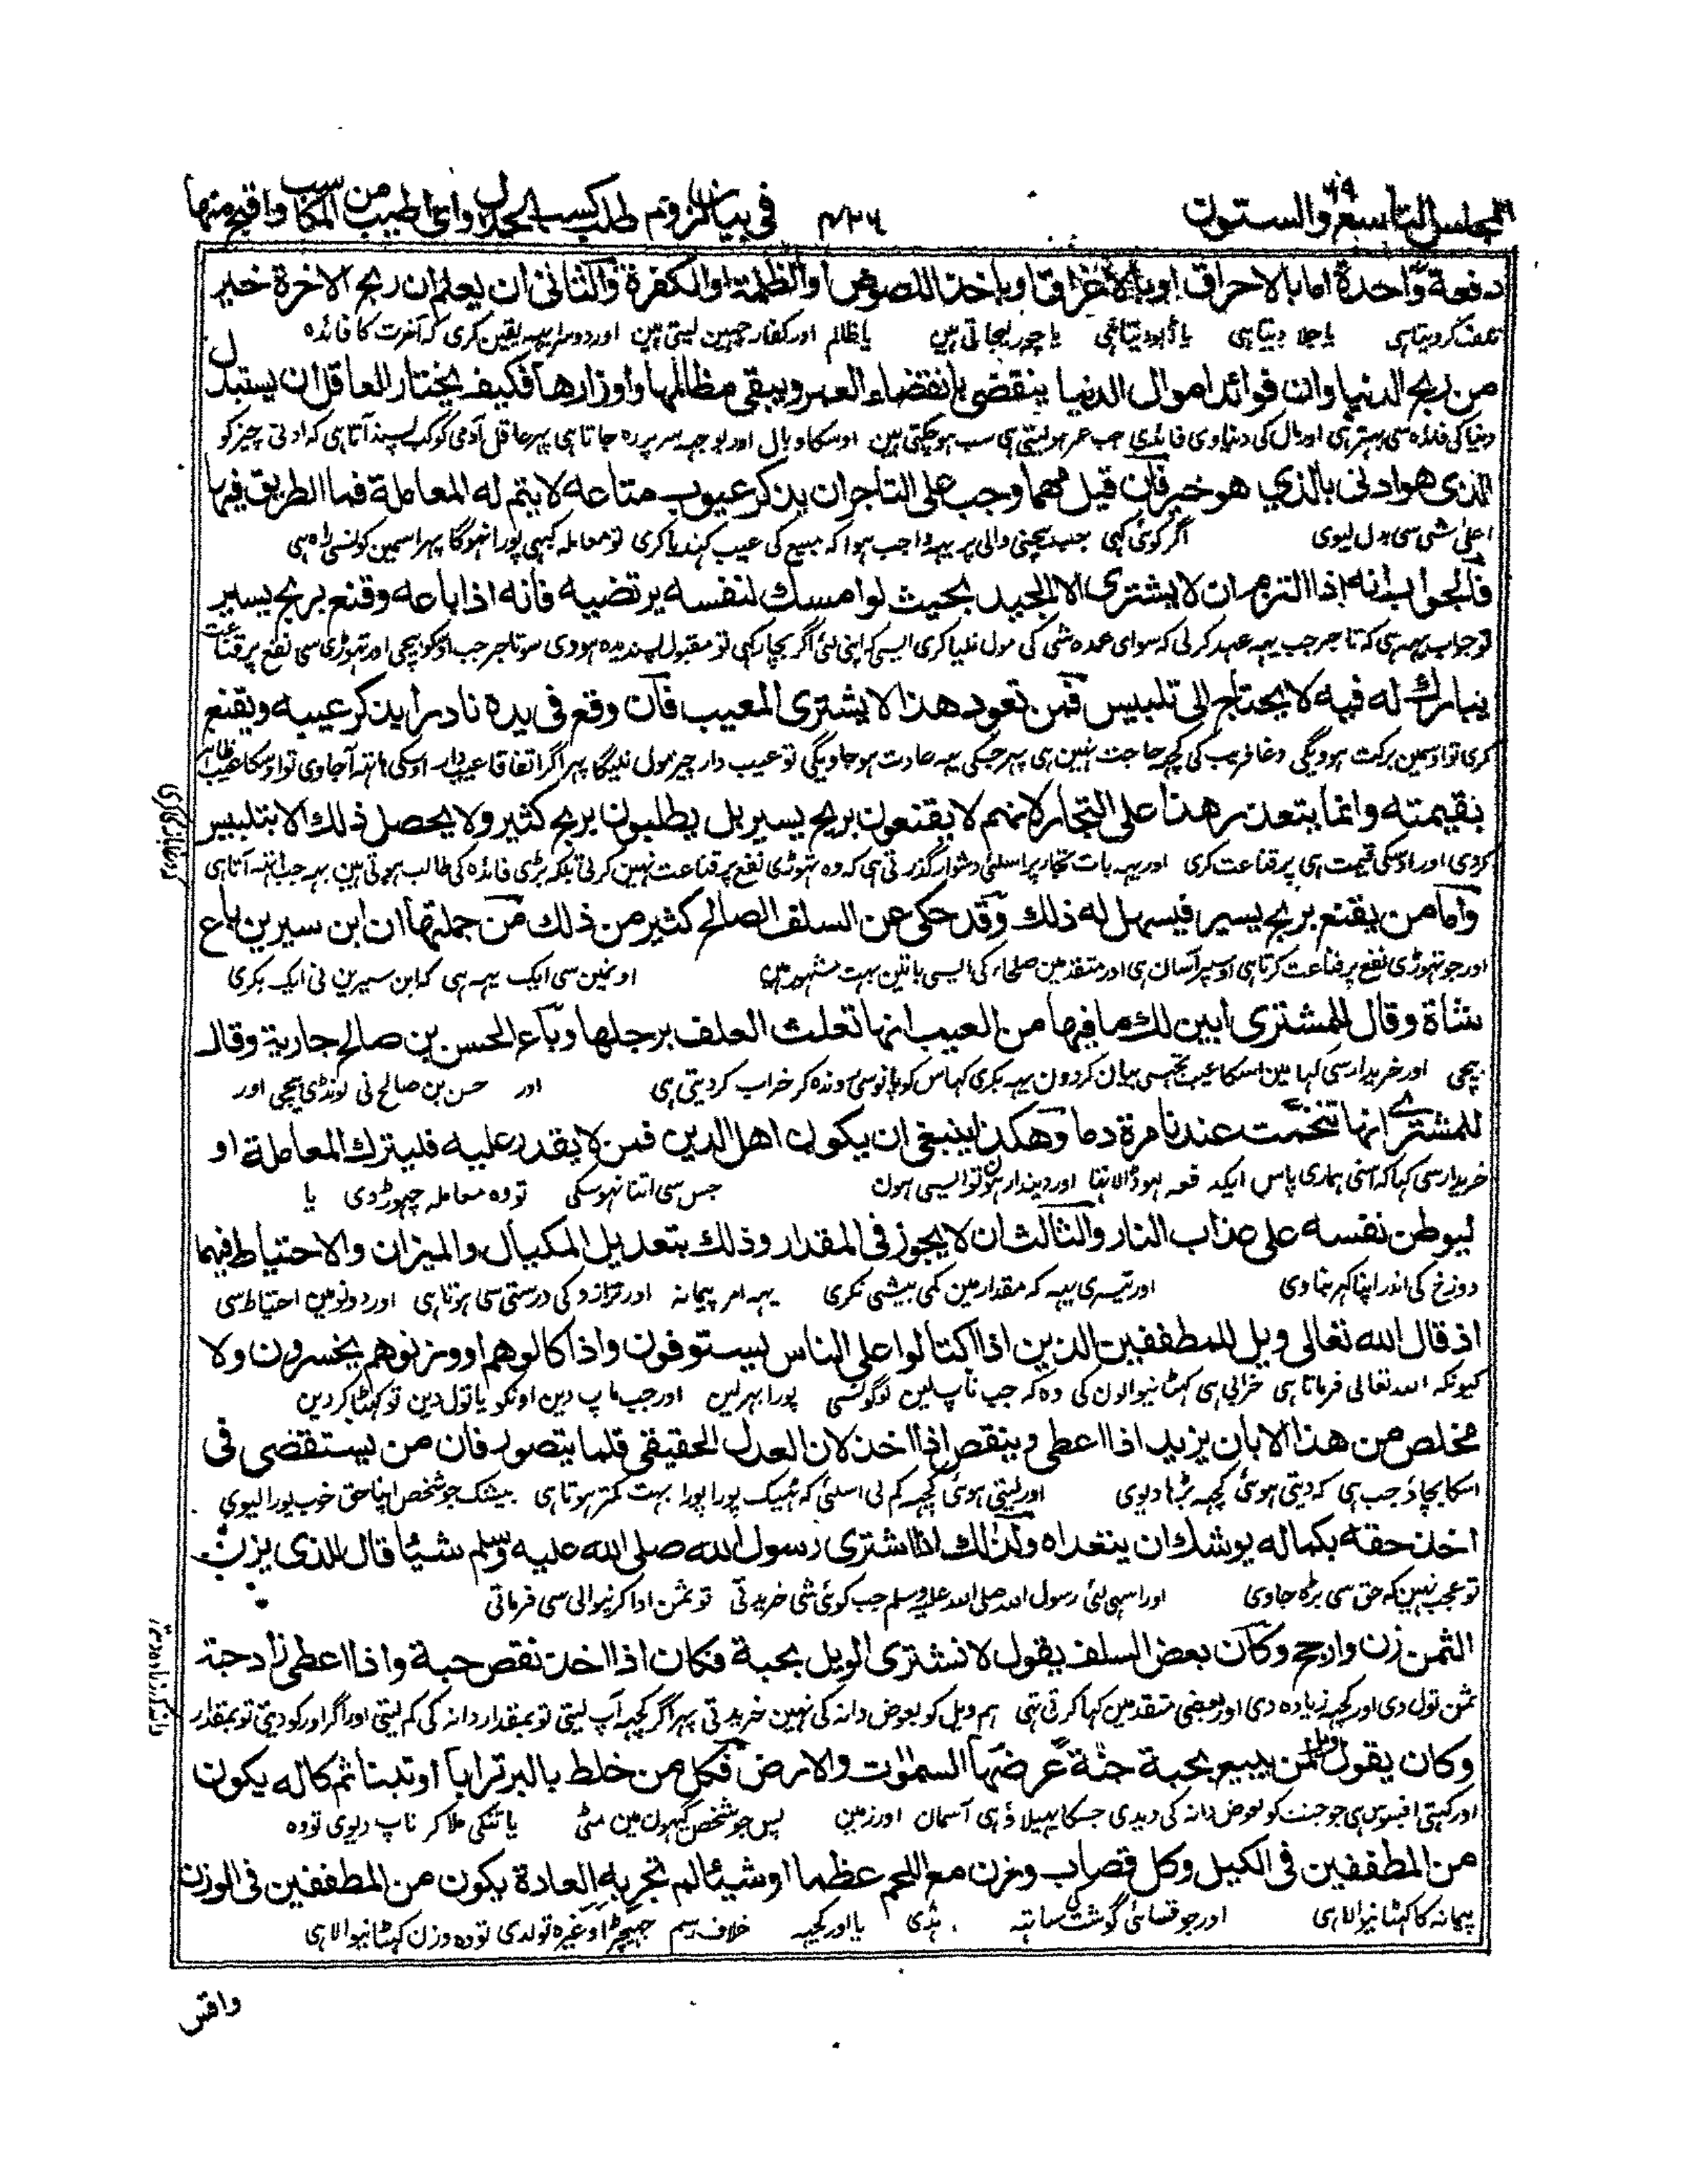 المجلس التاسع والستون ۴۲۶ في بيان لزوم طلب كسب الحلال واي اطيب من المكاسب واقبح منها
دفعة واحدة اما بالاحراق او بالاغراق او باخذ اللصوص او الظلمة او الكفرة والثاني ان يعلم ان ربح الاخرة خير
تلف کر دیتا ہی یا جلا دیتا ہی یا ڈبو دیتا ہی یا چور لیجاتی ہین یا ظالم اور کفار چھین لیتی ہین اور دوسرا یہہ یقین کری کہ آخرت کا فائدہ
من ربح الدنيا وان فوائد اموال الدنيا ينقضي بانقضاء العمر ويبقى مظالمها واوزارها فكيف يختار العاقل ان يستبدل
دنیا کی فائدہ سی بہتر ہی اور مال کی دنیاوی فائدی جب عمر ہو لیتی ہی سب ہو چکتی ہین اوسکا وبال اور بوجہہ سر پر رہ جاتا ہی پہر عاقل آدمی کو کب پسند آتا ہی کہ ادنی چیز کو
الذي هو ادنى بالذي هو خير فان قيل مهما وجب على التاجر ان يذكر عيوب متاعه لا يتم له المعاملة فما الطريق فيها
اعلی شی سی بدل لیوی اگر کوئی کہی جب بیچنی والی پر یہہ واجب ہوا کہ مبیع کی عیب کہدیا کری تو معاملہ کبہی پورا نہوگا پہر اسمین کونسی راہ ہی
فالجواب انه اذا التزم ان لا يشتري الا الجيد بحيث لو امسك لنفسه يرتضيه فانه اذا باعه وقنع بربح يسير
تو جواب یہہ ہی کہ تاجر جب یہہ عہد کر لی کہ سوای عمدہ شی کی مول نلیا کری ایسی کہ اپنی لئی اگر بچا رکہی تو مقبول پسندیدہ ہووی سو تاجر جب اوسکو بیچی اور تہوڑی سی نفع پر قناعت
يبارك له فيه لا يحتاج الى تلبيس فمن تعود هذا لا يشتري المعيب فان وقع في يده نادرا يذكر عيبه ويقنع
کری تو اوسمین برکت ہوویگی دغا فریب کی کچہہ حاجت نہین ہی پہر جسکی یہہ عادت ہو جاویگی تو عیب دار چیز مول نلیگا پہر اگر اتفاقا عیب دار اوسکی ہاتہہ آجاوی تو اوسکا عیب ظاہر
بقيمته وانما يتعذر هذا على التجار لانهم لا يقنعون بربح يسير بل يطلبون بربح كثير ولا يحصل ذلك الا بتلبيس
کردی اور اوسکی قیمت ہی پر قناعت کری اور یہہ بات تجار پر اسلئی دشوار گذرتی ہی کہ وہ تہوڑی نفع پر قناعت نہین کرتی بلکہ بڑی فائدہ کی طالب ہوتی ہین یہہ جب ہاتہہ آتا ہی
واما من يقنع بربح يسير فيسهل له ذلك وقد حكي عن السلف الصالح كثير من ذلك من جملتها ان ابن سيرين باع
اور جو تہوڑی نفع پر قناعت کرتا ہی اوسپر آسان ہی اور متقدمین صلحاء کی ایسی باتین بہت مشہور ہین اونمین سی ایک یہہ ہی کہ ابن سیرین نی ایک بکری
شاة وقال للمشتري ابين لك ما فيها من العيب انها تعلث العلف برجلها وباع الحسن بن صالح جارية وقال
بیچی اور خریدار سی کہا مین اسکا عیب تجہسی بیان کر دون یہہ بکری گہاس کو پانو سی روندہ کر خراب کر دیتی ہی اور حسن بن صالح نی لونڈی بیچی اور
للمشتري انها تنخمت عندنا مرة دما وهكذا ينبغي ان يكون اهل الدين فمن لا يقدر عليه فليترك المعاملة او
خریدار سی کہا کہ اسنی ہماری پاس ایک دفعہ لہو ڈالا تہا اور دیندار ہون تو ایسی ہون جس سی اتنا نہوسکی تو وہ معاملہ چہوڑ دی یا
ليوطن نفسه على عذاب النار والثالث ان لا يجوز في المقدار وذلك بتعديل المكيال والميزان والاحتياط فيهما
دوزخ کی اندر اپنا گہر بنا وی اور تیسری یہہ کہ مقدار مین کمی بیشی نکری یہہ امر پیمانہ اور ترازو کی درستی سی ہوتا ہی اور دونومین احتیاط سی
اذ قال الله تعالى ويل للمطففين الذين اذا اكتالوا على الناس يستوفون واذا كالوهم او وزنوهم يخسرون ولا
کیونکہ اللہ تعالی فرماتا ہی خرابی ہی گہٹانیوالون کی وہ کہ جب ناپ لین لوگونسی پورا بہر لین اور جب ماپ دین اونکو یا تول دین تو گہٹا کر دین
مخلص من هذا الا بان يزيد اذا اعطى وينقص اذا اخذ لان العدل الحقيقي قلما يتصور فان من يستقضي في
اسکا بچاؤ جب ہی کہ دیتی ہوئی کچہہ بڑہا دیوی اور لیتی ہوئی کچہہ کم لی اسلئی کہ ٹہیک پورا پورا بہت کمتر ہوتا ہی بیشک جو شخص اپنا حق خوب پورا لیوی
اخذ حقه بكماله يوشك ان يتعداه ولذلك اذا اشترى رسول الله صلى الله عليه وسلم شيئا قال للذي يزن
تو عجب نہین کہ حق سی بڑہ جاوی اور اسی لئی رسول اللہ صلی اللہ علیہ وسلم جب کوئی شی خریدتی تو ثمن ادا کرنیوالی سی فرماتی
الثمن زن وارجح وكان بعض السلف يقول لا نشتري الويل بحبة فكان اذا اخذ نقص حبة واذا اعطى زاد حبة
ثمن تول دی اور کچہہ زیادہ دی اور بعضی متقدمین کہا کرتی تہی ہم ویل کو بعوض دانہ کی نہین خریدتی پہر اگر کچہہ آپ لیتی تو بمقدار دانہ کی کم لیتی اور اگر اور کو دیتی تو بمقدار
وكان يقول ويل لمن يبيع بحبة جنة عرضها السموت والارض فكل من خلط بالبر ترابا او تبنا ثم كاله يكون
اور کہتی افسوس ہی جو جنت کو بعوض دانہ کی دیدی جسکا پہیلاؤ ہی آسمان اور زمین پس جو شخص گیہون مین مٹی یا تنکی ملا کر ناپ دیوی تو وہ
من المطففين في الكيل وكل قصاب وزن مع اللحم عظما او شيئا لم تجر به العادة يكون من المطففين في الوزن
پیمانہ کا گہٹانیوالا ہی اور جو قسائی گوشت کی ساتہہ ہڈی یا اور کچہہ خلاف رسم چہیچڑا وغیرہ تولدی تو وہ وزن گہٹانیوالا ہی